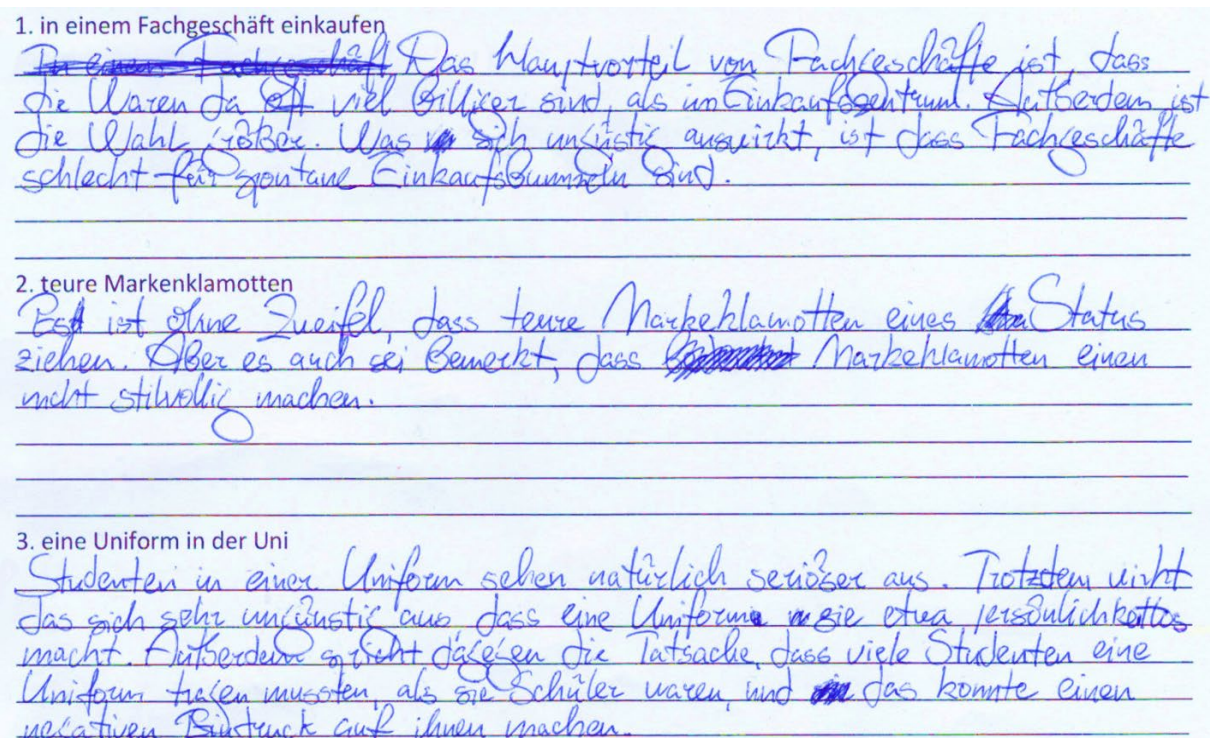 1. in einem Fachgeschäft einkaufen
In einem Fachgeschäft Das Hauptvorteil von Fachgeschäfte ist, dass
die Waren da oft viel billiger sind, als im Einkaufszentrum. Außerdem ist
die Wahl größer. Was sich ungüstig auswirkt, ist dass Fachgeschäfte
schlecht für spontane Einkaufsbummeln sind.
2. teure Markenklamotten
Es ist ohne Zweifel, dass teure Markeklamotten eines Status
ziehen. Aber es auch sei bemerkt, dass Markeklamotten einen
nicht stilvollig machen.
3. eine Uniform in der Uni
Studenten in einer Uniform sehen natürlich seriöser aus. Trotzdem wirkt
das sich sehr ungünstig aus dass eine Uniform sie etwa persönlichkeitlos
macht. Außerdem spricht dagegen die Tatsache, dass viele Studenten eine
Uniform tragen mussten, als sie Schüler waren, und das konnte einen
negativen Eindruck auf ihnen machen.